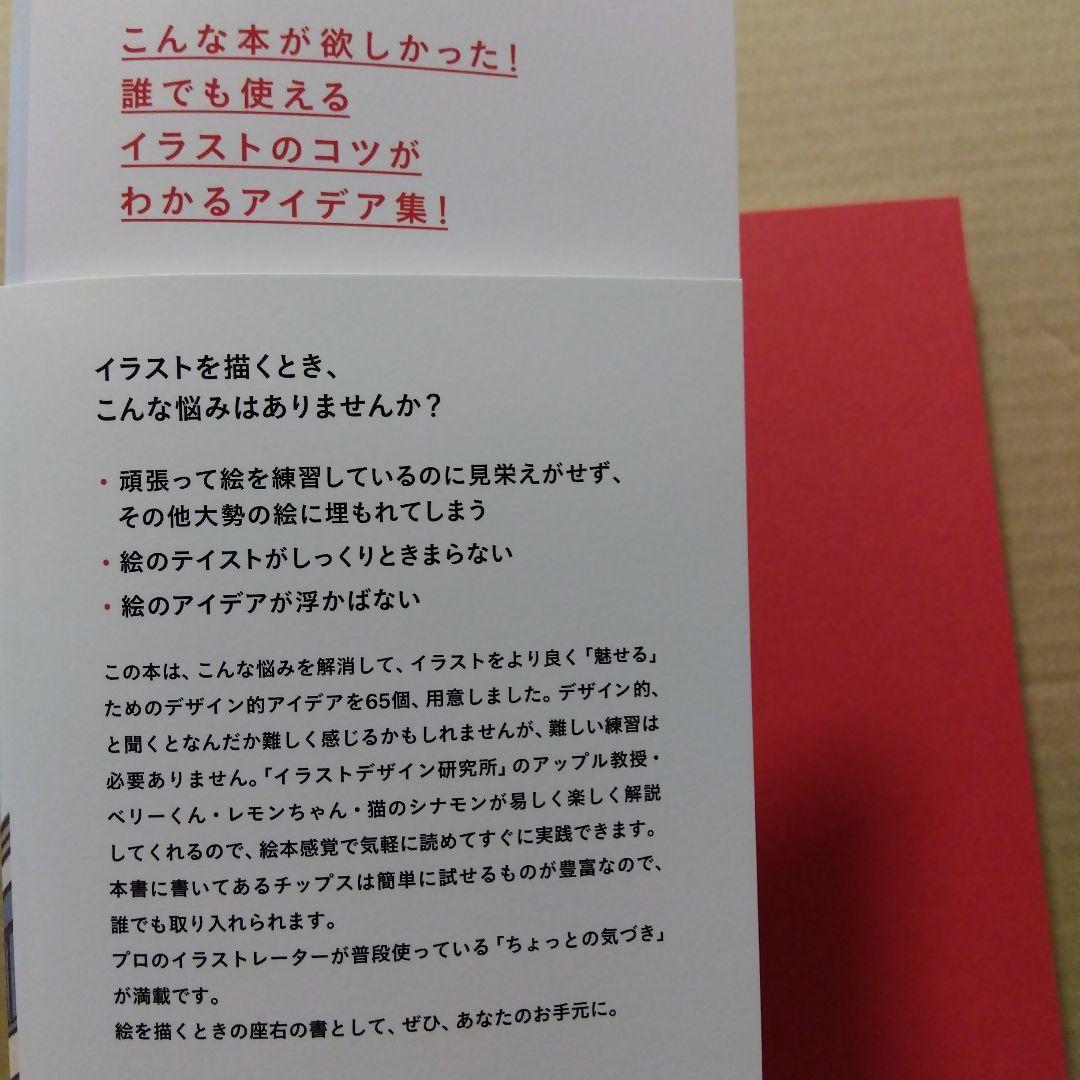 こんな本が欲しかった!
誰でも使える
イラストのコツが
わかるアイデア集!
イラストを描くとき、
こんな悩みはありませんか?
・頑張って絵を練習しているのに見栄えがせず、
その他大勢の絵に埋もれてしまう
・絵のテイストがしっくりときまらない
・絵のアイデアが浮かばない
この本は、こんな悩みを解消して、イラストをより良く「魅せる」
ためのデザイン的アイデアを65個、用意しました。デザイン的、
と聞くとなんだか難しく感じるかもしれませんが、難しい練習は
必要ありません。「イラストデザイン研究所」のアップル教授・
ベリーくん・レモンちゃん・猫のシナモンが易しく楽しく解説
してくれるので、絵本感覚で気軽に読めてすぐに実践できます。
本書に書いてあるチップスは簡単に試せるものが豊富なので、
誰でも取り入れられます。
プロのイラストレーターが普段使っている「ちょっとの気づき」
が満載です。
絵を描くときの座右の書として、ぜひ、あなたのお手元に。